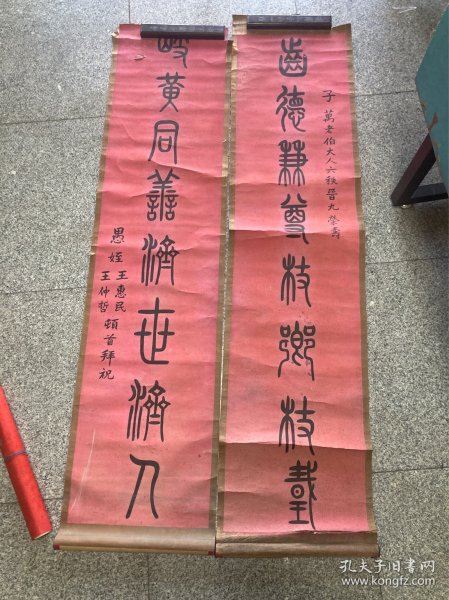 齒德兼尊杖鄉杖
子萬老伯大人六秩晉九榮壽
岐黃同善濟世濟人
愚姪
王惠民
王仲哲
頓首拜祝
孔夫子旧书网
www.kongfz.com